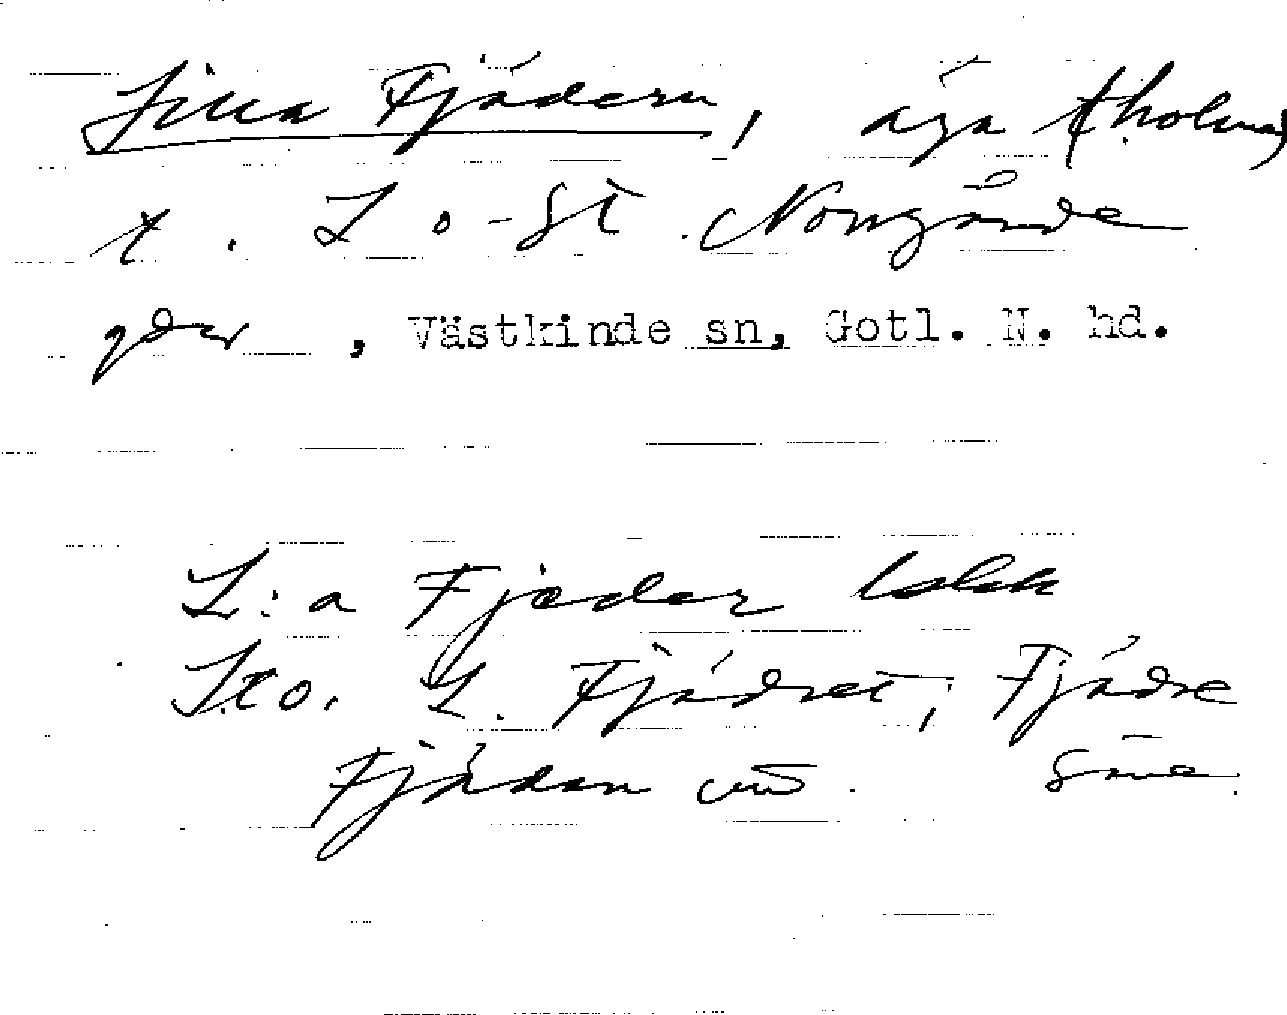 Lilla Fjädern, äga (holme)
t. L o. St. Norrgårde
gdar, Västkinde sn, Gotl. N. hd.
L:a Fjæder
Sto. L. Fjädret, Fjädre
Fjädern